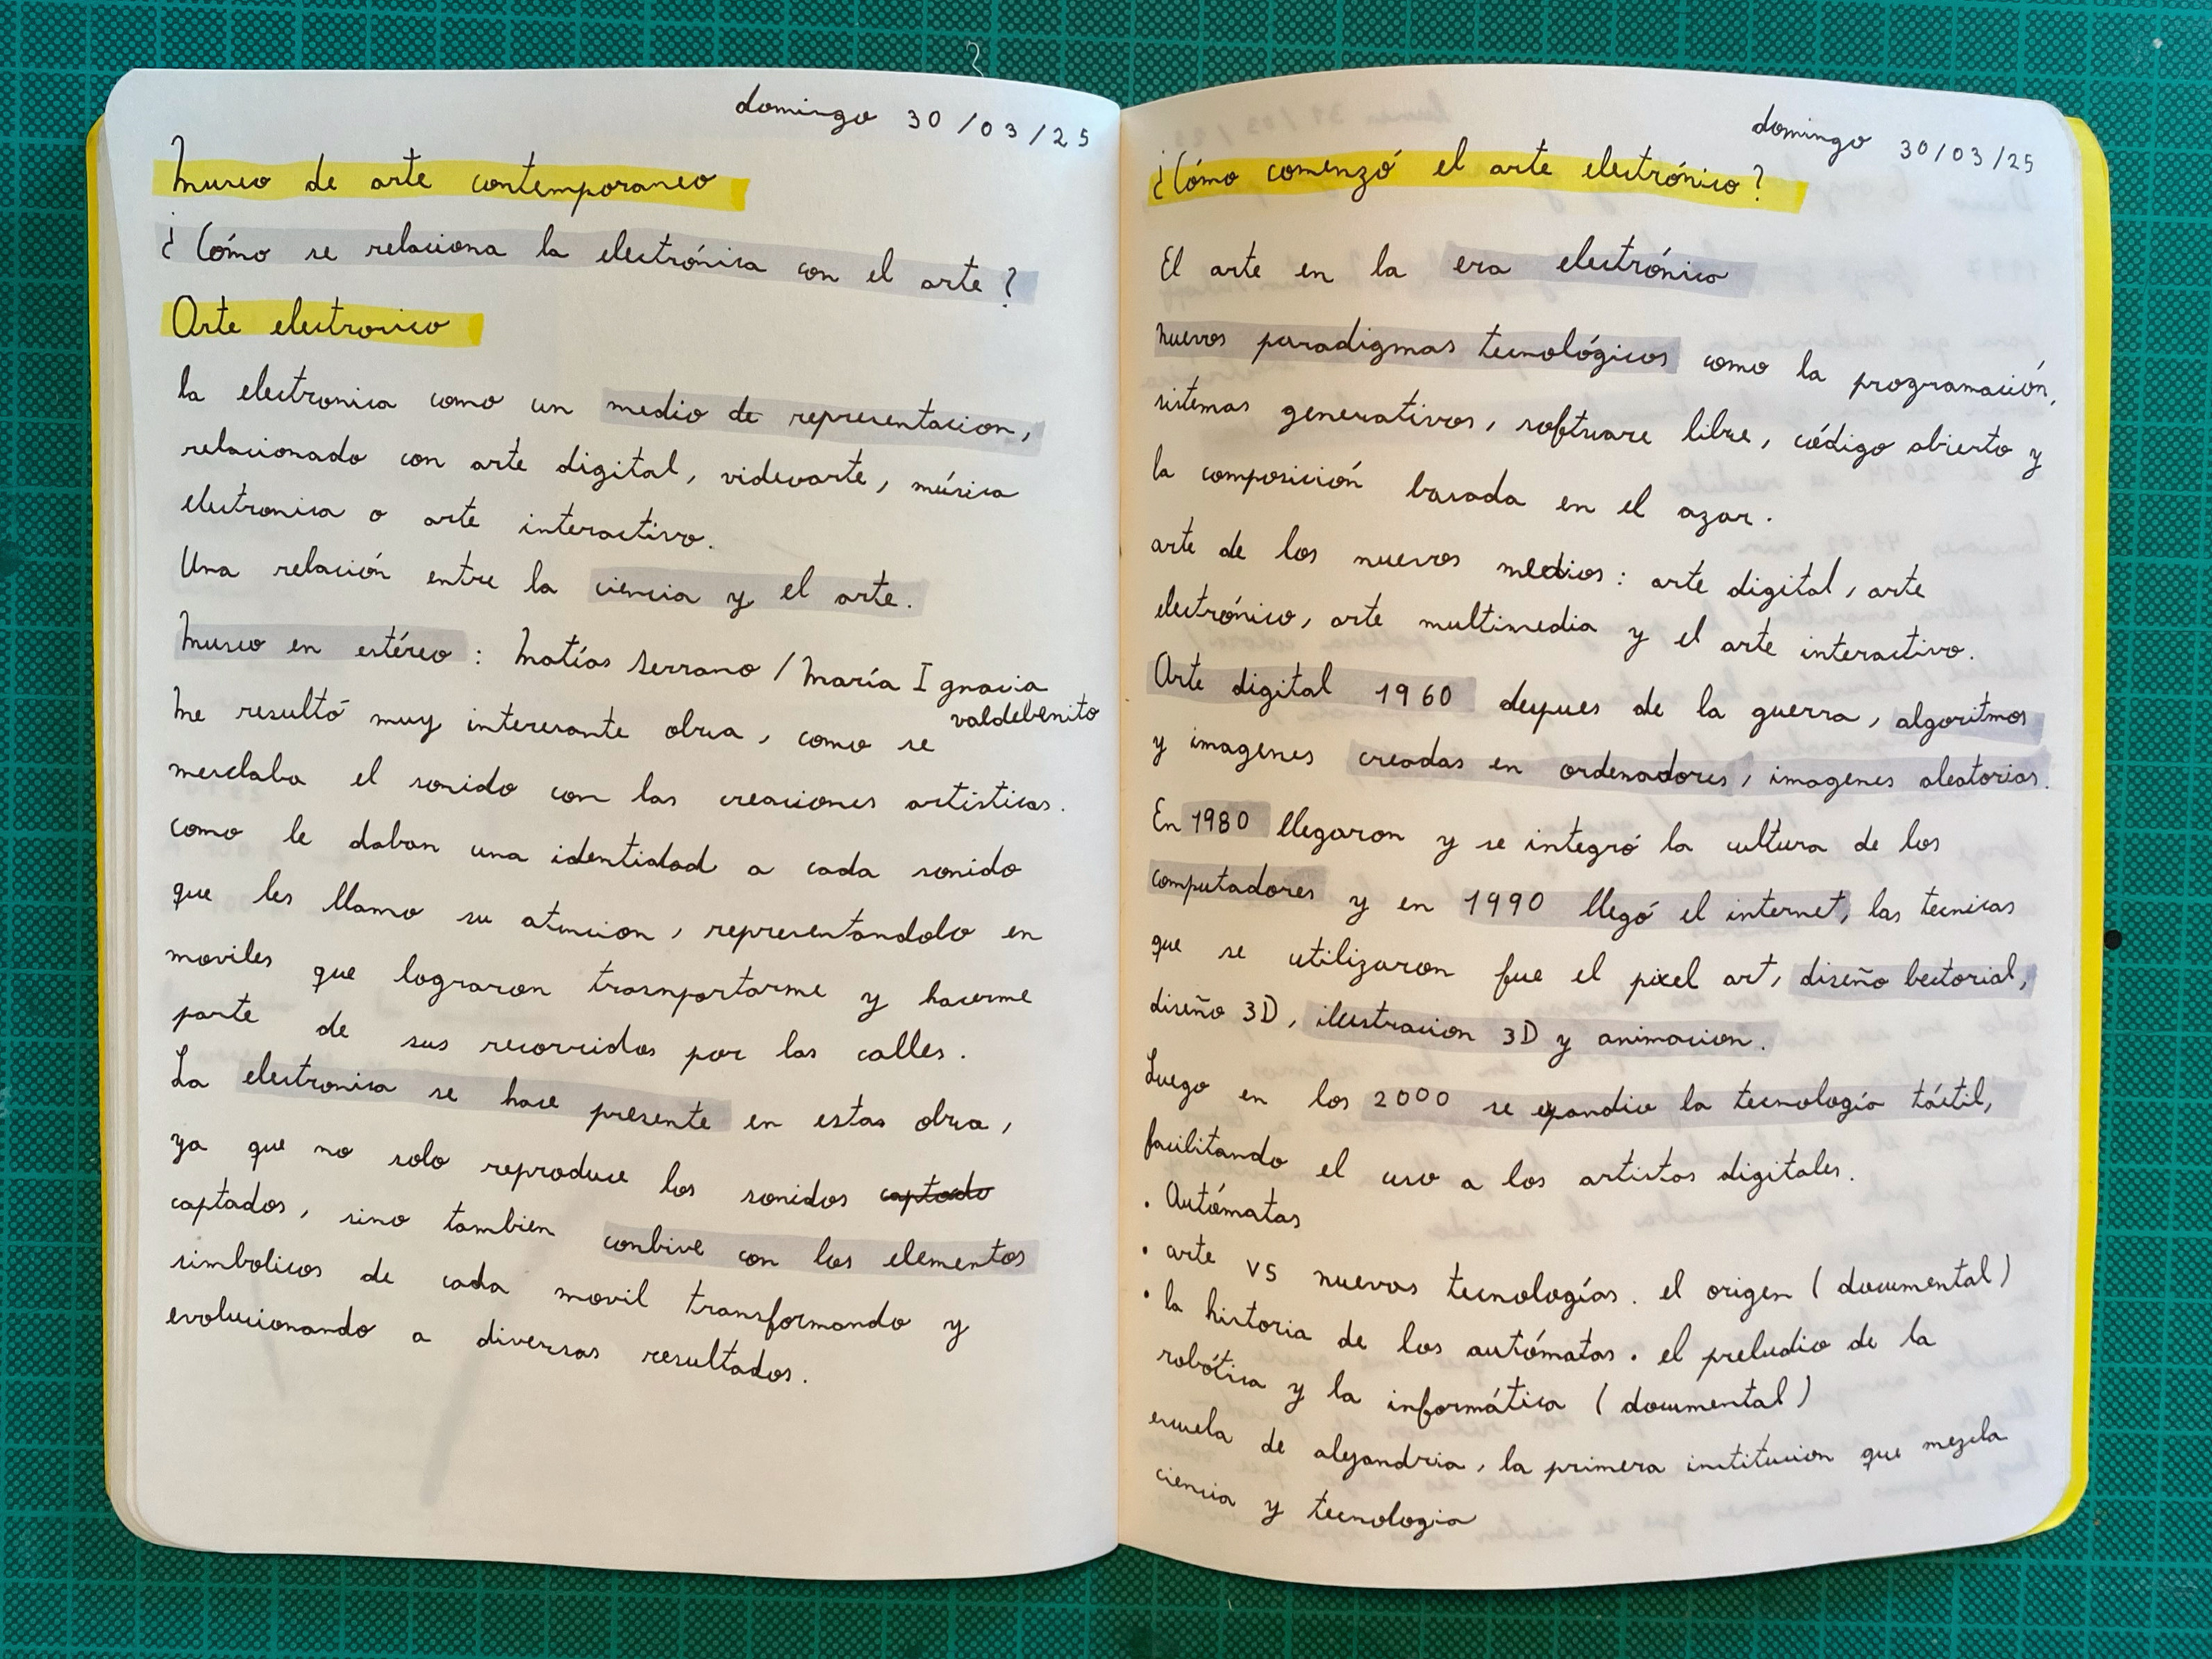 domingo 30/03/25
Museo de arte contemporaneo
¿Cómo se relaciona la electrónica con el arte?
Arte electronico
la electronica como un medio de representacion,
relacionado con arte digital, videoarte, música
electronica o arte interactivo.
Una relación entre la ciencia y el arte.
Museo en estéreo: Matías Serrano / María Ignacia
valdebenito
Me resultó muy interesante obra, como se
mesclaba el sonido con las creaciones artisticas.
como le daban una identidad a cada sonido
que les llamo su atencion, representandolo en
moviles que lograron trasnportarme y hacerme
parte de sus recorridos por las calles.
La electronica se hace presente en estas obra,
ya que no solo reproduce los sonidos captado
captados, sino tambien conbive con los elementos
simbolicos de cada movil transformando y
evolucionando a diversas resultados.
domingo 30/03/25
¿Cómo comenzó el arte electrónico?
El arte en la era electrónico
nuevos paradigmas tecnológicos como la programación,
sistemas generativos, software libre, código abierto y
la composición basada en el azar.
arte de los nuevos medios: arte digital, arte
electrónico, arte multimedia y el arte interactivo.
Arte digital 1960 depues de la guerra, algoritmos
y imagenes creadas en ordenadores, imagenes aleatorias.
En 1980 llegaron y se integró la cultura de los
computadores y en 1990 llegó el internet, las tecnicas
que se utilizaron fue el pixel art, diseño bectorial,
diseño 3D, ilustracion 3D y animacion.
Luego en los 2000 se expandio la tecnología táctil,
facilitando el uso a los artistas digitales.
· Autómatas
· arte vs nuevas tecnologías. el origen (documental)
· la historia de los autómatas. el preludio de la
robótica y la informática (documental)
escuela de alejandria, la primera institucion que mezcla
ciencia y tecnologia